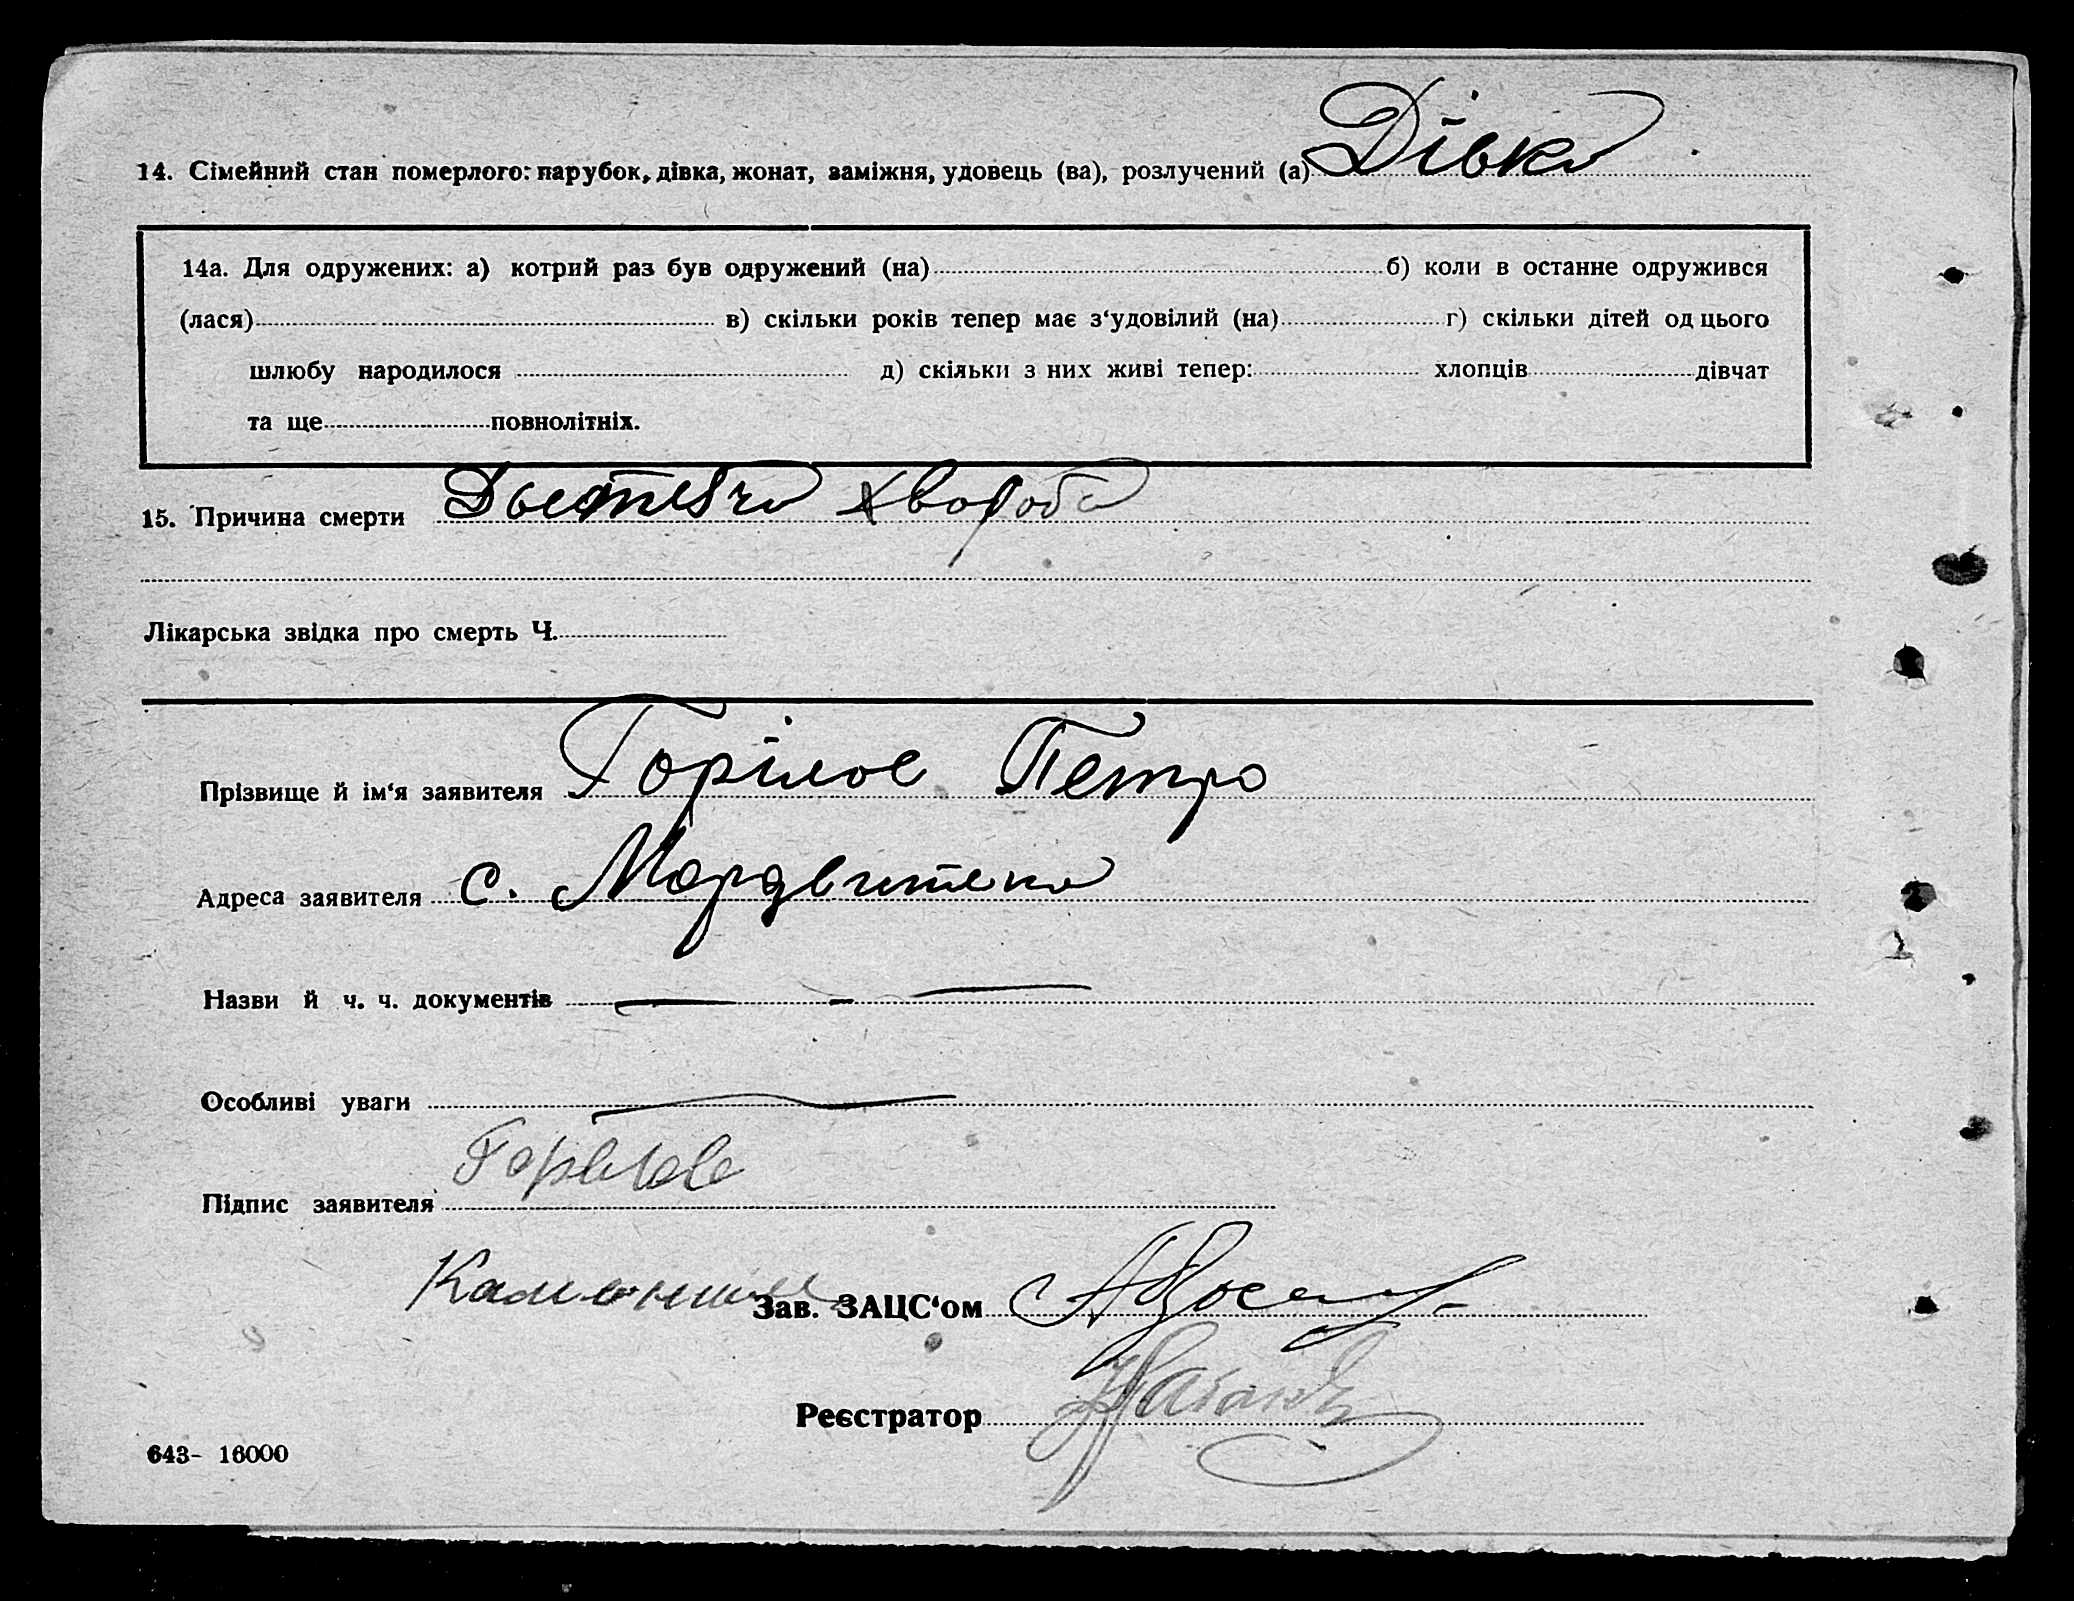 14. Сімейний стан померлого: парубок, дівка, жонат, заміжня, удовець (ва), розлучений (а) Дівка
14а. Для одружених: а) котрий раз був одружений (на) б) коли в останне одружився
(лася) в) скільки років тепер має з‘удовілий (на) г) скільки дітей од цього
шлюбу народилося д) скільки з них живі тепер: хлопців дівчат
та ще повнолітніх.
15. Причина смерти хвороба
Лікарська звідка про смерть Ч.
Прізвище й ім‘я заявителя Горілов Петро
Адреса заявителя с.
Назви й ч. ч. документів — - —
Особливі уваги —
Підпис заявителя
Зав. ЗАЦС‘ом
Реєстратор
643- 16000